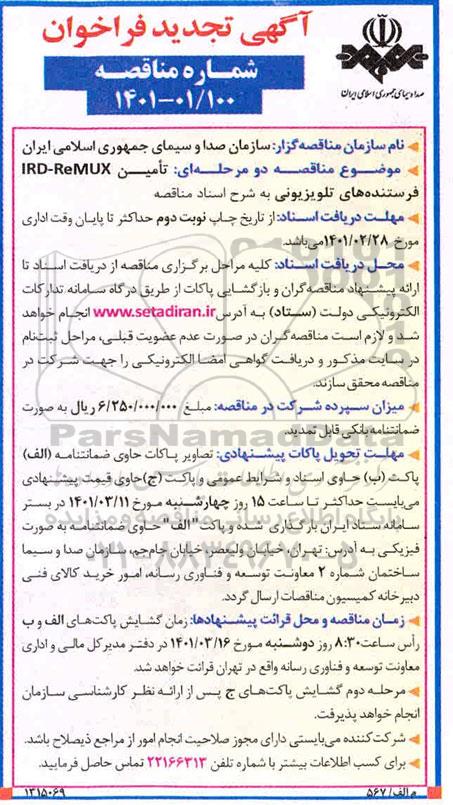 آگهی تجدید فراخوان
شماره مناقصه
۱۴۰۱-۰۱/۱۰۰
صدا و سیمای جمهوری اسلامی ایران
نام سازمان مناقصه‌گزار: سازمان صدا و سیمای جمهوری اسلامی ایران
موضوع مناقصه دو مرحله‌ای: تأمین IRD-ReMUX
فرستنده‌های تلویزیونی به شرح اسناد مناقصه
مهلت دریافت اسناد: از تاریخ چاپ نوبت دوم حداکثر تا پایان وقت اداری
مورخ ۱۴۰۱/۰۲/۲۸ می‌باشد.
محل دریافت اسناد: کلیه مراحل برگزاری مناقصه از دریافت اسناد تا
ارائه پیشنهاد مناقصه‌گران و بازگشایی پاکات از طریق درگاه سامانه تدارکات
الکترونیکی دولت (ستاد) به آدرس www.setadiran.ir انجام خواهد
شد و لازم است مناقصه‌گران در صورت عدم عضویت قبلی، مراحل ثبت‌نام
در سایت مذکور و دریافت گواهی امضا الکترونیکی را جهت شرکت در
مناقصه محقق سازند.
میزان سپرده شرکت در مناقصه: مبلغ ۶/۲۵۰/۰۰۰/۰۰۰ ریال به صورت
ضمانتنامه بانکی قابل تمدید.
مهلت تحویل پاکات پیشنهادی: تصاویر پاکات حاوی ضمانتنامه (الف)
پاکت (ب) حاوی اسناد و شرایط عمومی و پاکت (ج) حاوی قیمت پیشنهادی
می‌بایست حداکثر تا ساعت ۱۵ روز چهارشنبه مورخ ۱۴۰۱/۰۳/۱۱ در بستر
سامانه ستاد ایران بارگذاری شده و پاکت "الف" حاوی ضمانتنامه به صورت
فیزیکی به آدرس: تهران، خیابان ولیعصر، خیابان جام‌جم، سازمان صدا و سیما
ساختمان شماره ۲ معاونت توسعه و فناوری رسانه، امور خرید کالای فنی
دبیرخانه کمیسیون مناقصات ارسال گردد.
زمان مناقصه و محل قرائت پیشنهادها: زمان گشایش پاکت‌های الف و ب
رأس ساعت ۸:۳۰ روز دوشنبه مورخ ۱۴۰۱/۰۳/۱۶ در دفتر مدیرکل مالی و اداری
معاونت توسعه و فناوری رسانه واقع در تهران قرائت خواهد شد.
مرحله دوم گشایش پاکت‌های ج پس از ارائه نظر کارشناسی سازمان
انجام خواهد پذیرفت.
شرکت‌کننده می‌بایستی دارای مجوز صلاحیت انجام امور از مراجع ذیصلاح باشد.
برای کسب اطلاعات بیشتر با شماره تلفن ۲۲۱۶۶۳۱۳ تماس حاصل فرمایید.
م الف/۵۶۷
۱۳۱۵۰۶۹
ParsNamadData